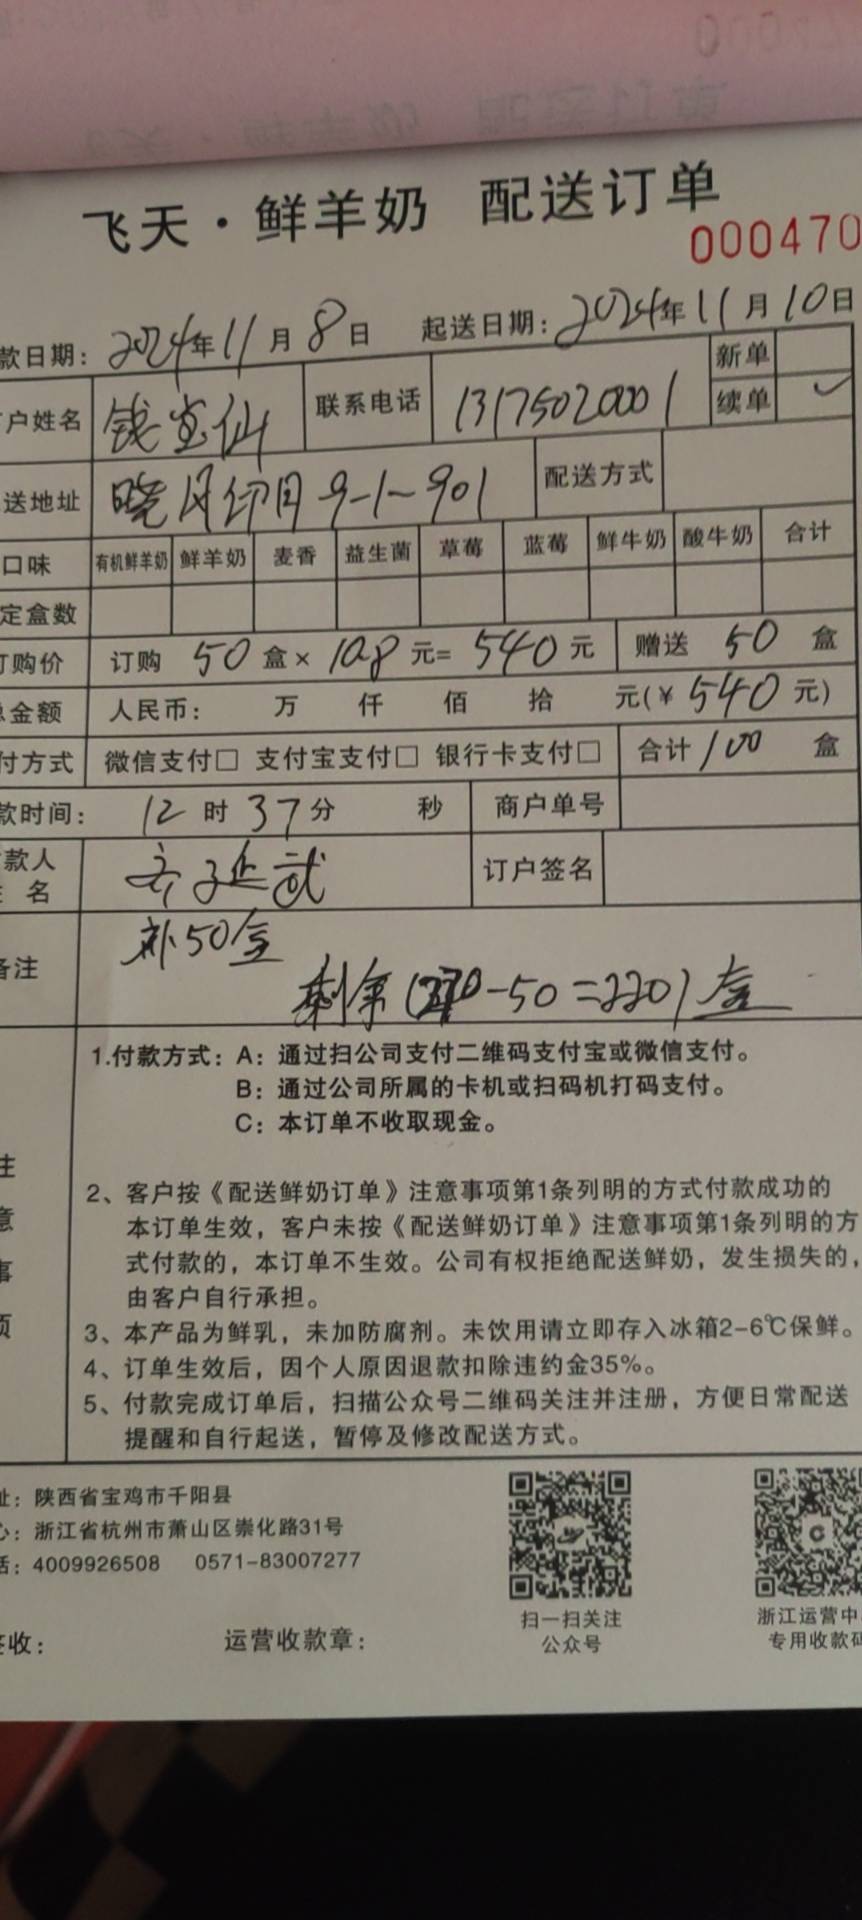 飞天·鲜羊奶 配送订单
000470
款日期：2024年11月8日 起送日期：2024年11月10日
户姓名 钱 仙 联系电话 13175020001 新单
续单 ✓
送地址 晓月印月9-1-901 配送方式
口味 有机鲜羊奶 鲜羊奶 麦香 益生菌 草莓 蓝莓 鲜牛奶 酸牛奶 合计
定盒数
订购价 订购 50 盒× 10.8 元= 540 元 赠送 50 盒
总金额 人民币： 万 仟 佰 拾 元(￥540元)
付方式 微信支付□ 支付宝支付□ 银行卡支付□ 合计 100 盒
款时间： 12时37分 秒 商户单号
款人
姓 名 延武 订户签名
备注 补50盒
剩余( -50=220)盒
1.付款方式：A：通过扫公司支付二维码支付宝或微信支付。
B：通过公司所属的卡机或扫码机打码支付。
C：本订单不收取现金。
注意事项
2、客户按《配送鲜奶订单》注意事项第1条列明的方式付款成功的
本订单生效，客户未按《配送鲜奶订单》注意事项第1条列明的方
式付款的，本订单不生效。公司有权拒绝配送鲜奶，发生损失的，
由客户自行承担。
3、本产品为鲜乳，未加防腐剂。未饮用请立即存入冰箱2-6℃保鲜。
4、订单生效后，因个人原因退款扣除违约金35%。
5、付款完成订单后，扫描公众号二维码关注并注册，方便日常配送
提醒和自行起送，暂停及修改配送方式。
址：陕西省宝鸡市千阳县
心：浙江省杭州市萧山区崇化路31号
话：4009926508 0571-83007277
扫一扫关注
公众号
浙江运营中
专用收款码
签收： 运营收款章：